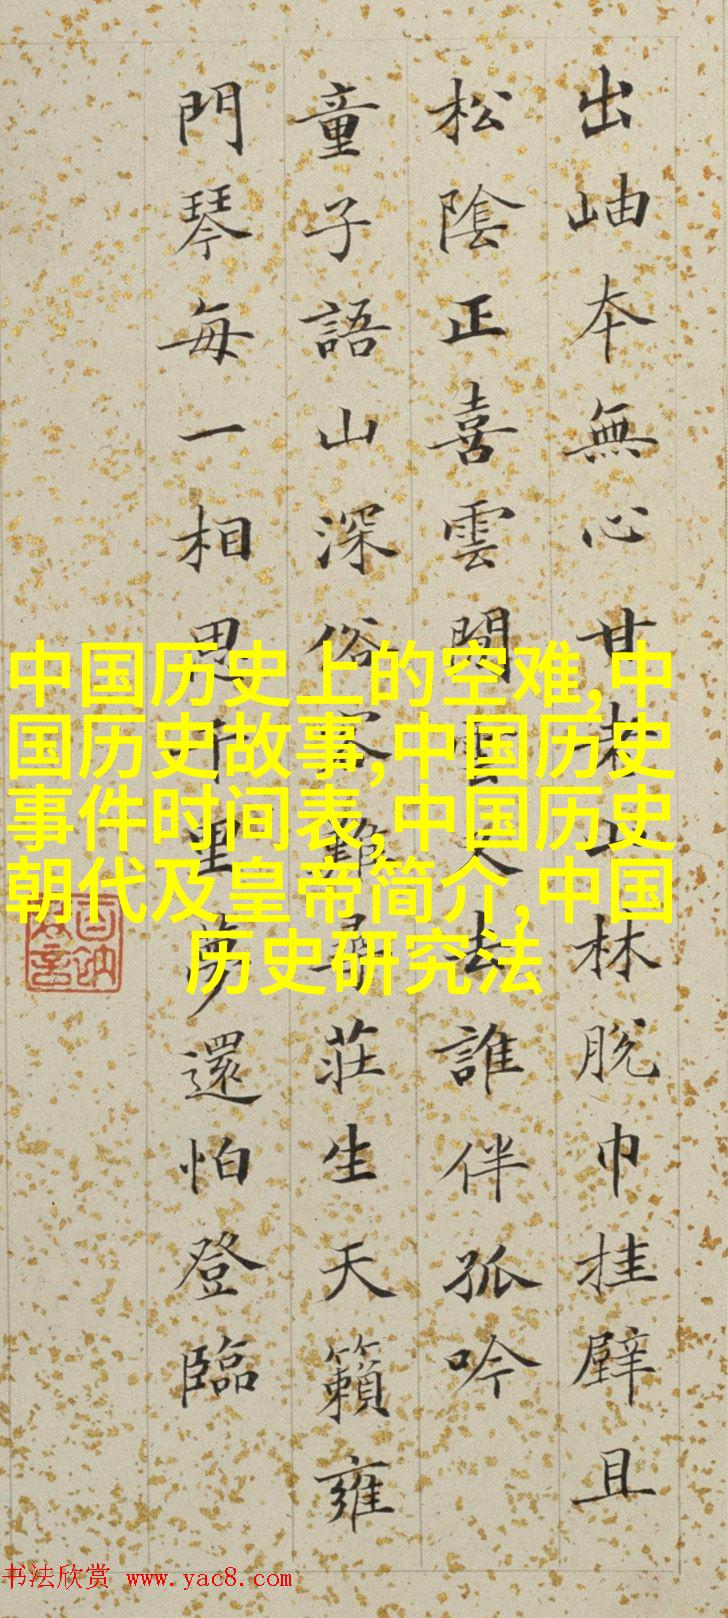 出岫本無心甘林脫巾挂壁且
松陰正喜雲閑雲又去誰伴孤吟
童子語山深俗客難尋莊生天籟雍
門琴每一相思千里夢還怕登臨
中国历史上的空难,中
国历史故事,中国历史
事件时间表,中国历史
朝代及皇帝简介,中国
历史研究法
书法欣赏 www.yac8.com